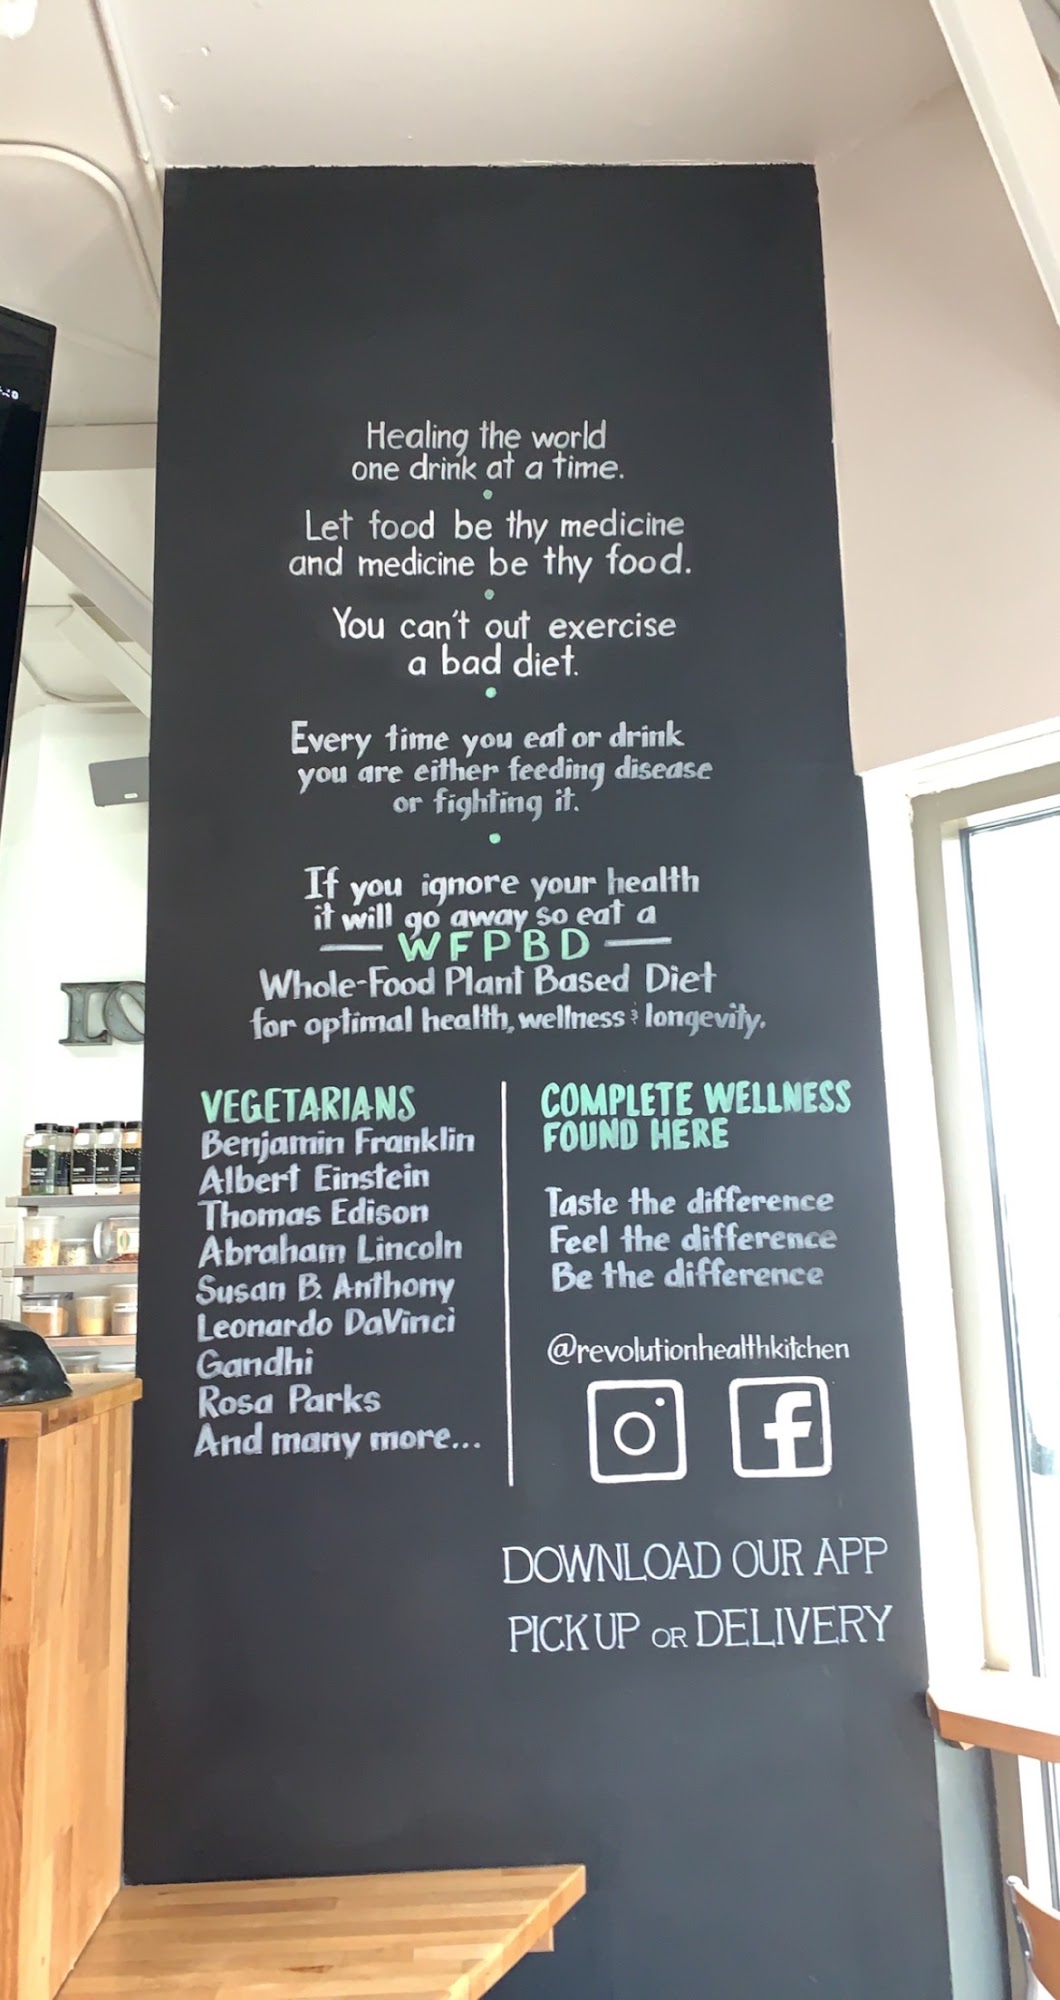 Healing the world
one drink at a time.
Let food be thy medicine
and medicine be thy food.
You can't out exercise
a bad diet.
Every time you eat or drink
you are either feeding disease
or fighting it.
If you ignore your health
it will go away so eat a
WFPBD
Whole-Food Plant Based Diet
for optimal health, wellness & longevity.
VEGETARIANS
Benjamin Franklin
Albert Einstein
Thomas Edison
Abraham Lincoln
Susan B. Anthony
Leonardo DaVinci
Gandhi
Rosa Parks
And many more...
COMPLETE WELLNESS
FOUND HERE
Taste the difference
Feel the difference
Be the difference
@revolutionhealthkitchen
DOWNLOAD OUR APP
PICK UP OR DELIVERY
LO